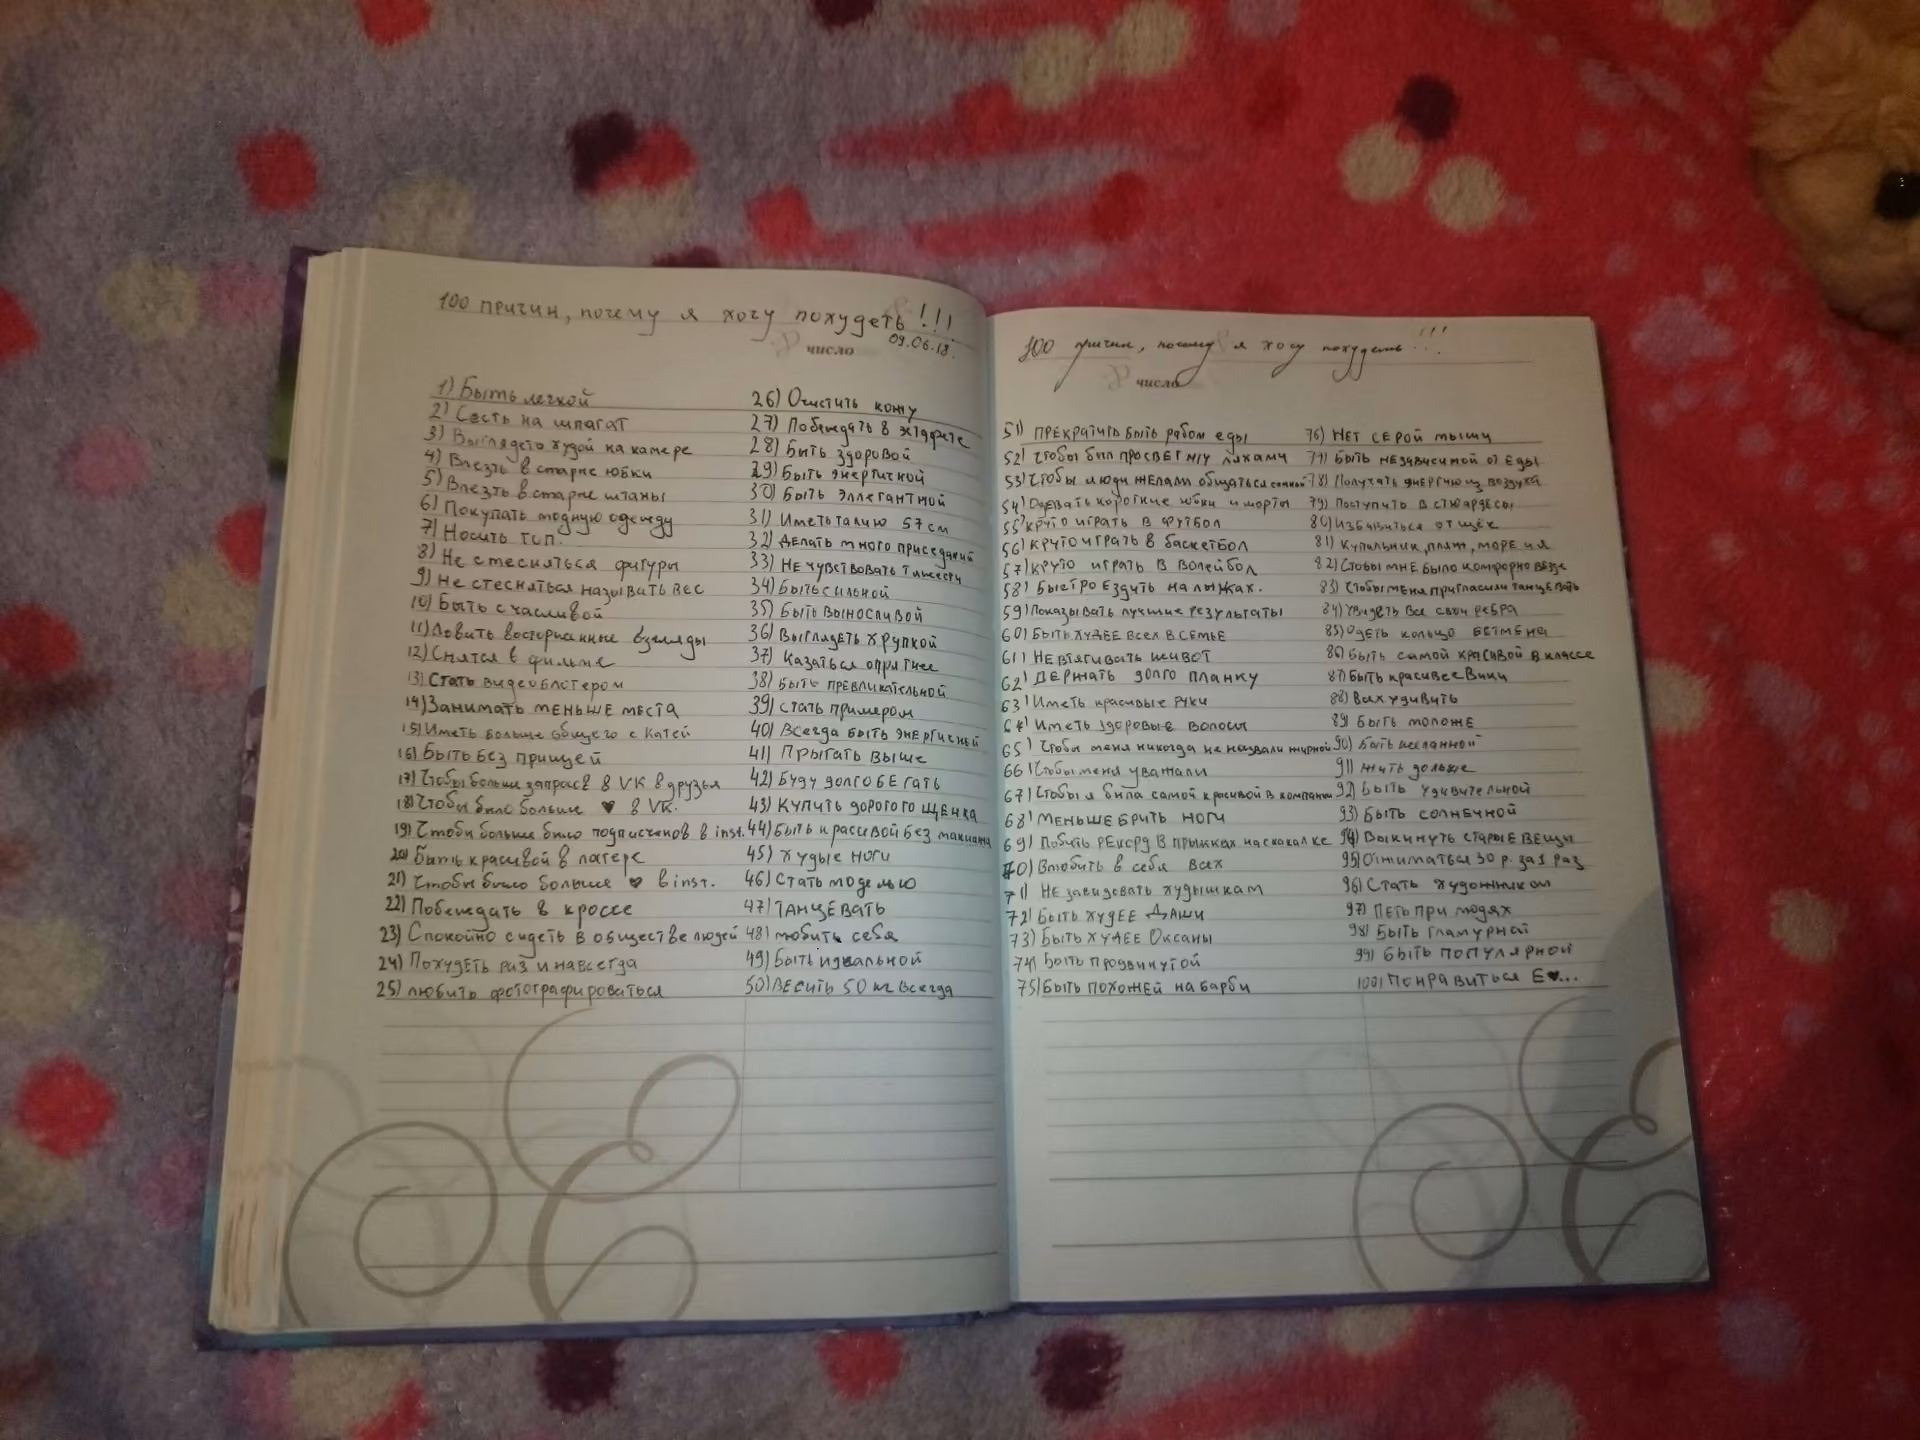 100 причин, почему я хочу похудеть!!!
09.06.18.
число
1) Быть легкой
2) Сесть на шпагат
3) Выглядеть худой на камере
4) Влезть в старые юбки
5) Влезть в старые штаны
6) Покупать модную одежду
7) Носить топ.
8) Не стесняться фигуры
9) Не стесняться называть вес
10) Быть счасливой
11) Ловить восторженные взгляды
12) Снятся в фильме
13) Стать видеоблогером
14) Занимать меньше места
15) Иметь больше общего с Катей
16) Быть без прищей
17) Чтобы больше запрасв в VK в друзья
18) Чтобы было больше ♥ в VK.
19) Чтобы больше было подписчеков в inst.
20) Быть красивой в лагере
21) Чтобы было больше ♥ в inst.
22) Побеждать в кроссе
23) Спокойно сидеть в обществе людей
24) Похудеть раз и навсегда
25) Любить фотографироваться
26) Очистить кожу
27) Побеждать в эстафете
28) Быть здоровой
29) Быть энергичной
30) Быть эллегантной
31) Иметь талию 57 см
32) Делать много приседаний
33) Не чувствовать тяжести
34) Быть сильной
35) Быть выносливой
36) Выглядеть хрупкой
37) Казаться опрятнее
38) Быть превликательной
39) Стать примером
40) Всегда быть энергичной
41) Прыгать выше
42) Буду долго бегать
43) Купить дорогого щенка
44) Быть красивой без макияжа
45) Худые ноги
46) Стать моделью
47) Танцевать
48) Любить себя
49) Быть идеальной
50) Весить 50 кг всегда
100 причин, почему я хочу похудеть!!!
число
51) Прекратить быть рабом еды
52) Чтобы был просвет м/у ляхами
53) Чтобы люди желали общаться со мной
54) Одевать короткие юбки и шорты
55) Круто играть в футбол
56) Круто играть в баскетбол
57) Круто играть в волейбол
58) Быстро ездить на лыжах.
59) Показывать лучшие результаты
60) Быть худее всех в семье
61) Не втягивать живот
62) Держать долго планку
63) Иметь красивые руки
64) Иметь здоровые волосы
65) Чтобы меня никогда не назвали жирной
66) Чтобы меня уважали
67) Чтобы я была самой красивой в компании
68) Меньше брить ноги
69) Побить рекорд в прыжках на скакалке
70) Влюбить в себя всех
71) Не завидовать худышкам
72) Быть худее Даши
73) Быть худее Оксаны
74) Быть продвинутой
75) Быть похожей на барби
76) Нет серой мыши
77) Быть независимой от еды
78) Получать энергию из воздуха
79) Поступить в стюардесы
80) Избавиться от щёк
81) Купальник, пляж, море и я
82) Чтобы мне было комфорно везде
83) Чтобы меня пригласили танцевать
84) Увидеть все свои ребра
85) Одеть кольцо бетмена
86) Быть самой красивой в классе
87) Быть красивее Вики
88) Всех удивить
89) Быть моложе
90) Быть желанной
91) Жить дольше
92) Быть удивительной
93) Быть солнечной
94) Выкинуть старые вещи
95) Отжиматься 30 р. за 1 раз
96) Стать художником
97) Петь при людях
98) Быть гламурной
99) Быть популярной
100) Понравиться Е♥...